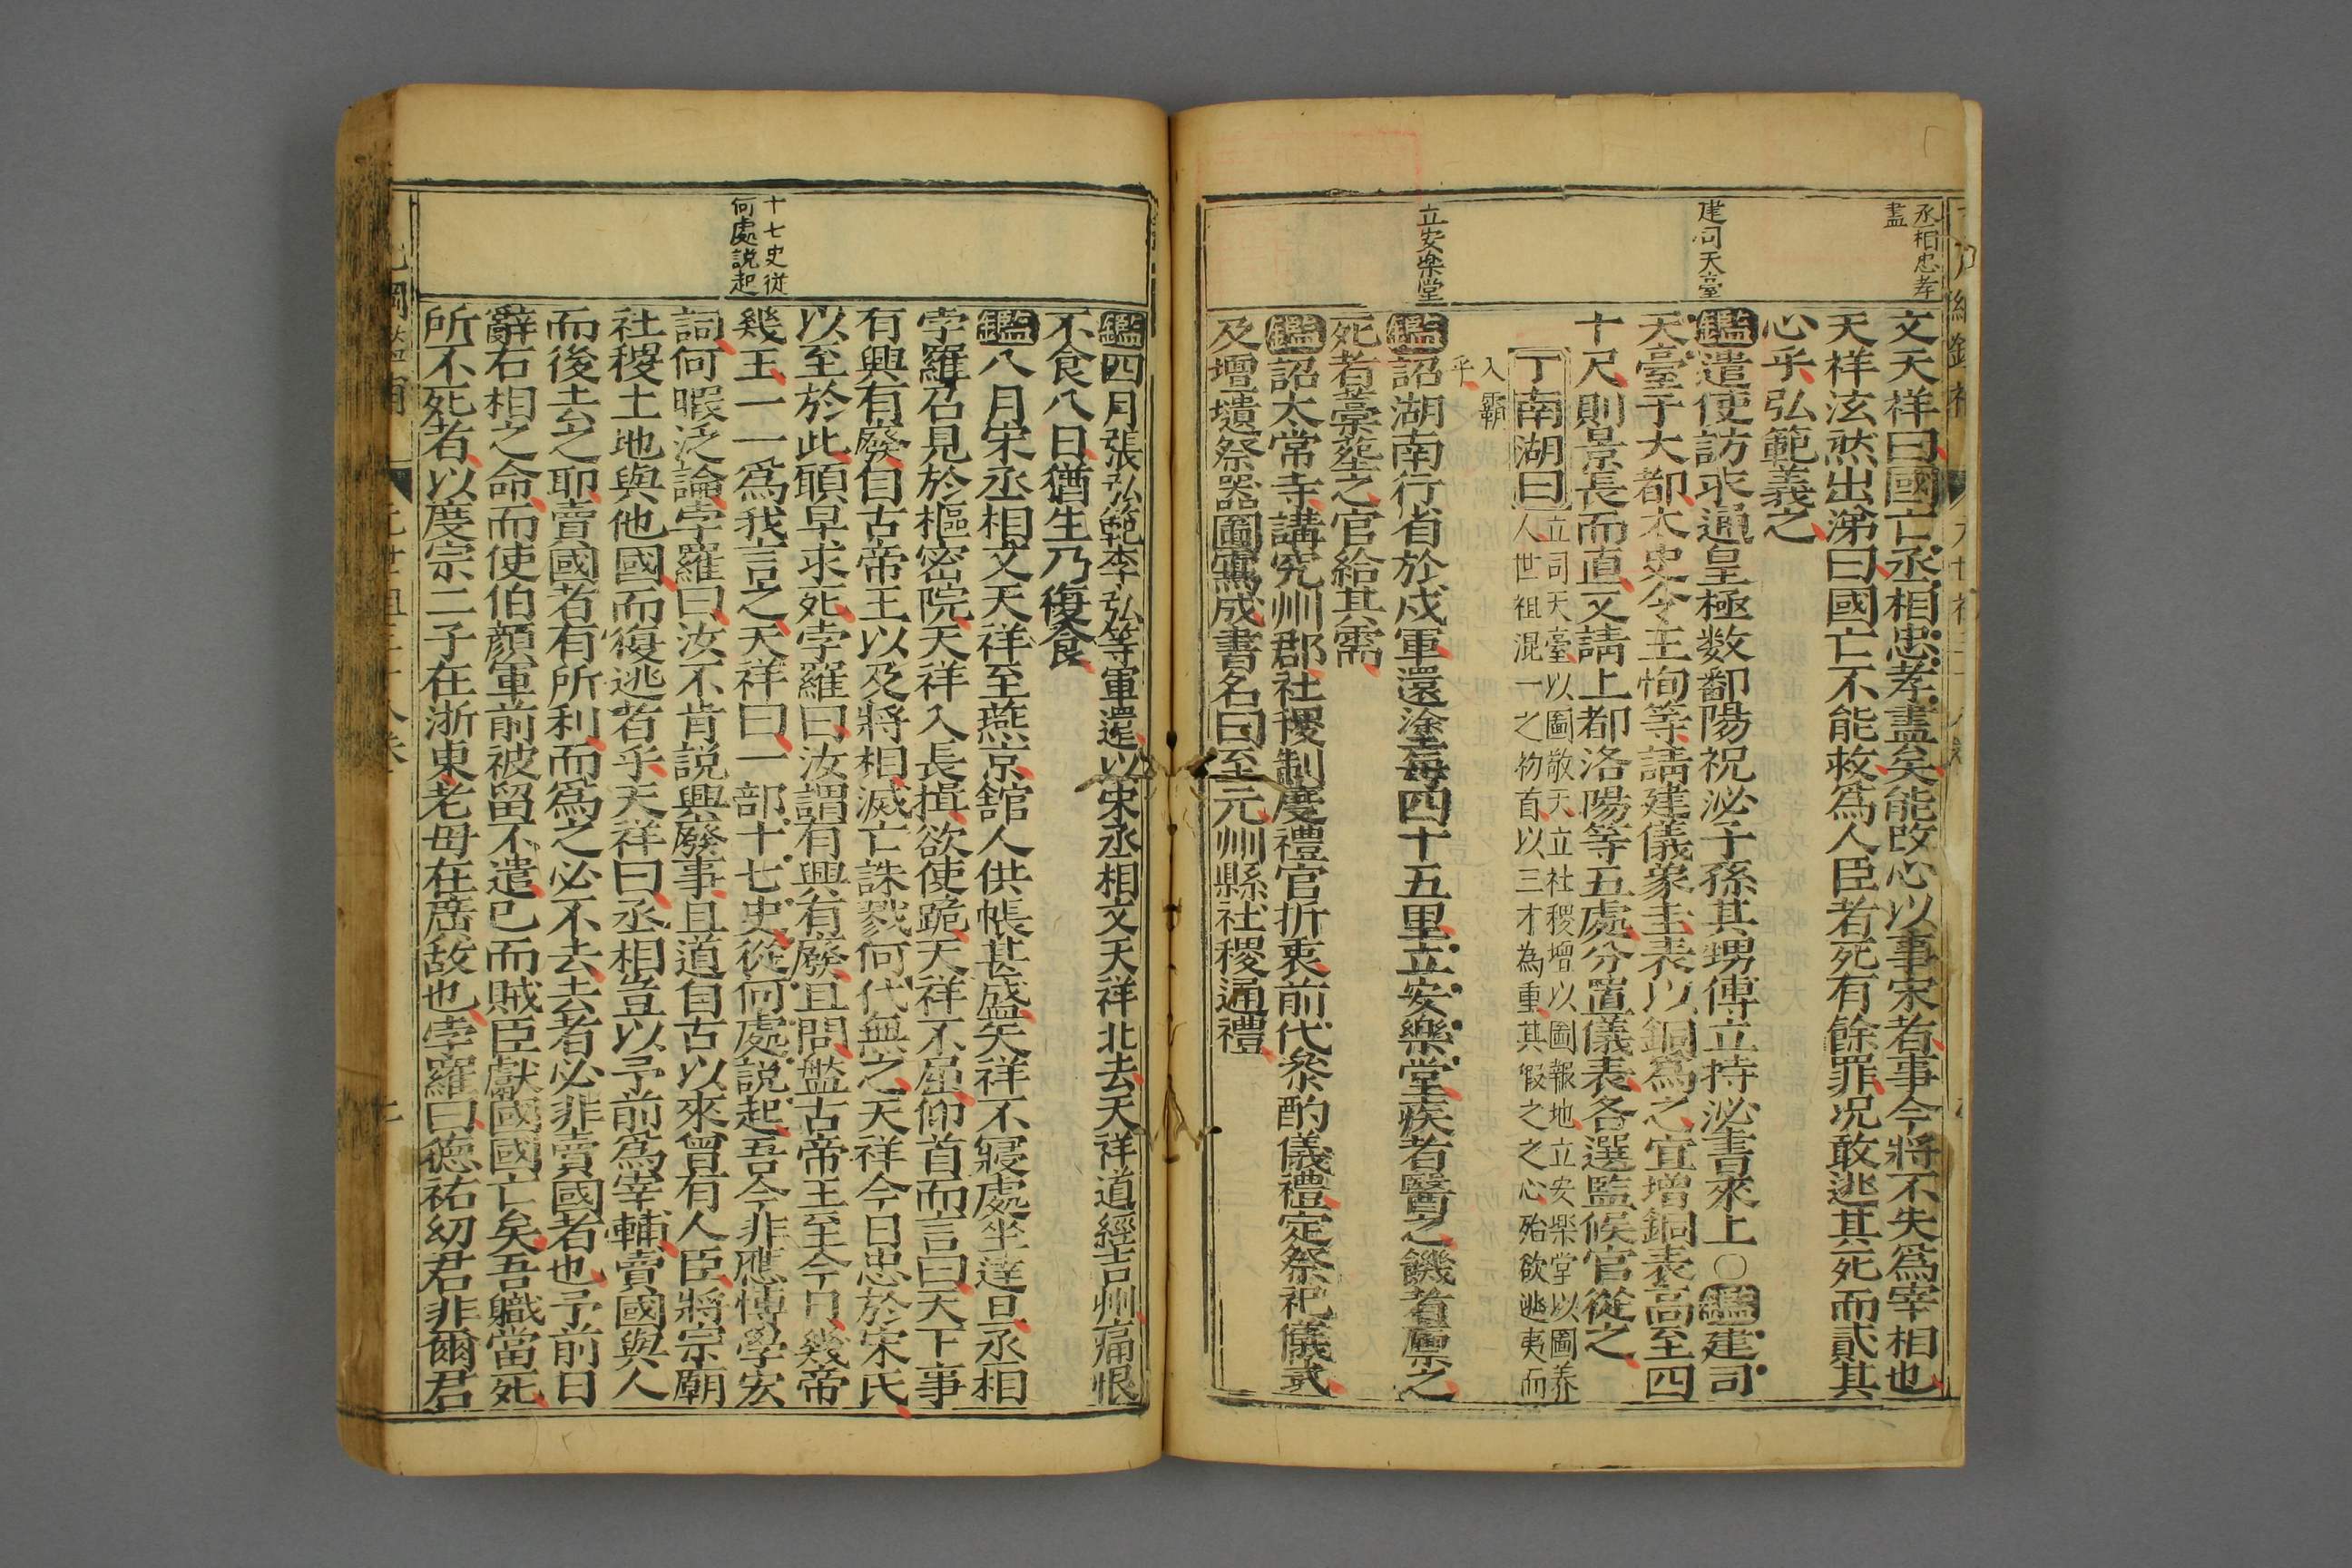 丞相忠孝
盡
建司天臺
立安樂堂
文天祥曰國亡丞相忠孝盡矣能改心以事宋者事今將不失爲宰相也
天祥泫然出涕曰國亡不能救爲人臣者死有餘罪况敢逃其死而貳其
心乎弘範義之
鑑遣使訪求通皇極数鄱陽祝泌子孫其甥傅立持泌書來上○鑑建司
天臺于大都太史令王恂等請建儀象圭表以銅爲之宜增銅表高至四
十尺則景長而直又請上都洛陽等五處分置儀表各選監候官從之
丁南湖曰立司天臺以圖敬天立社稷增以圖報地立安樂堂以圖養
人世祖混一之物首以三才為重其假之之心殆欲逃夷而
入霸
乎
鑑詔湖南行省於戍軍還塗每四十五里立安樂堂疾者醫之饑者廪之
死者藁塟之官給其需
鑑詔太常寺講究州郡社稷制度禮官折衷前代參酌儀禮定祭祀儀式
及壇壝祭器圖寫成書名曰至元州縣社稷通禮
十七史從
何處説起
鑑四月張弘範李弘等軍還以宋丞相文天祥北去天祥道經吉州痛恨
不食八日猶生乃復食
鑑八月宋丞相文天祥至燕京舘人供帳甚盛天祥不寢處坐達旦丞相
孛羅召見於樞密院天祥入長揖欲使跪天祥不屈仰首而言曰天下事
有興有廢自古帝王以及將相滅亡誅戮何代無之天祥今日忠於宋氏
以至於此願早求死孛羅曰汝謂有興有廢且問盤古帝王至今日幾帝
幾王一一爲我言之天祥曰一部十七史從何處説起吾今非應愽學宏
詞何暇泛論孛羅曰汝不肯説興廢事且道自古以來曾有人臣將宗廟
社稷土地與他國而復逃者乎天祥曰丞相豈以予前爲宰輔賣國與人
而後去之耶賣國者有所利而爲之必不去去者必非賣國者也予前日
辭右相之命而使伯顔軍前被留不遣已而賊臣獻國國亡矣吾職當死
所不死者以度宗二子在浙東老母在廣故也孛羅曰德祐幼君非爾君